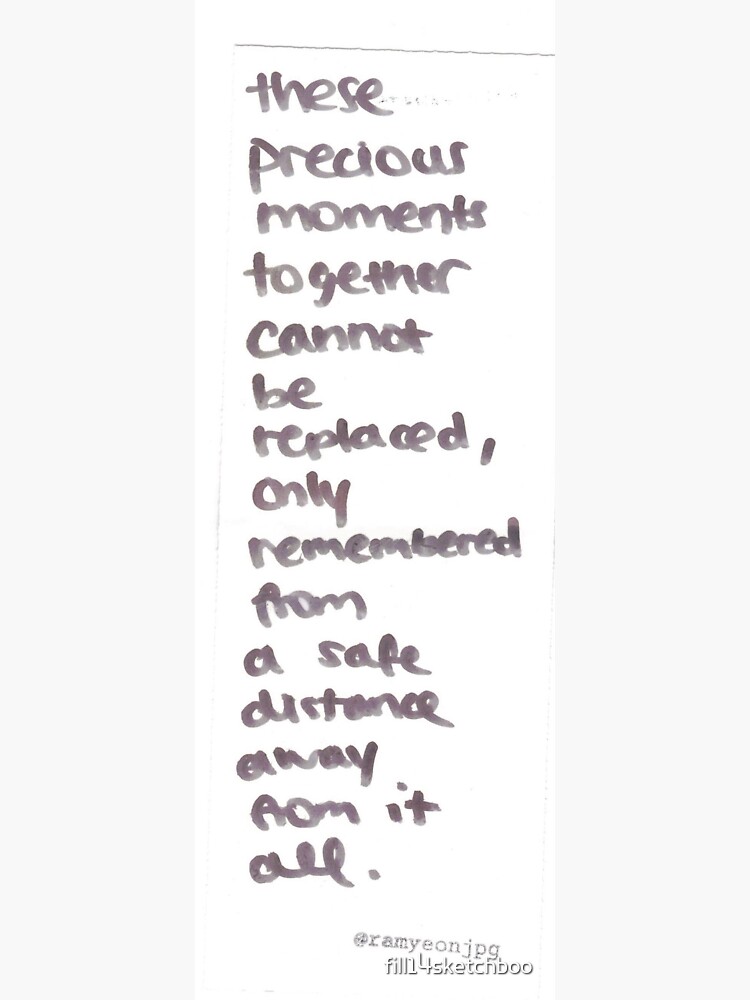 these
precious
moments
together
cannot
be
replaced,
only
remembered
from
a safe
distance
away
from it
all.
@ramyeonjpg
fill14sketchboo